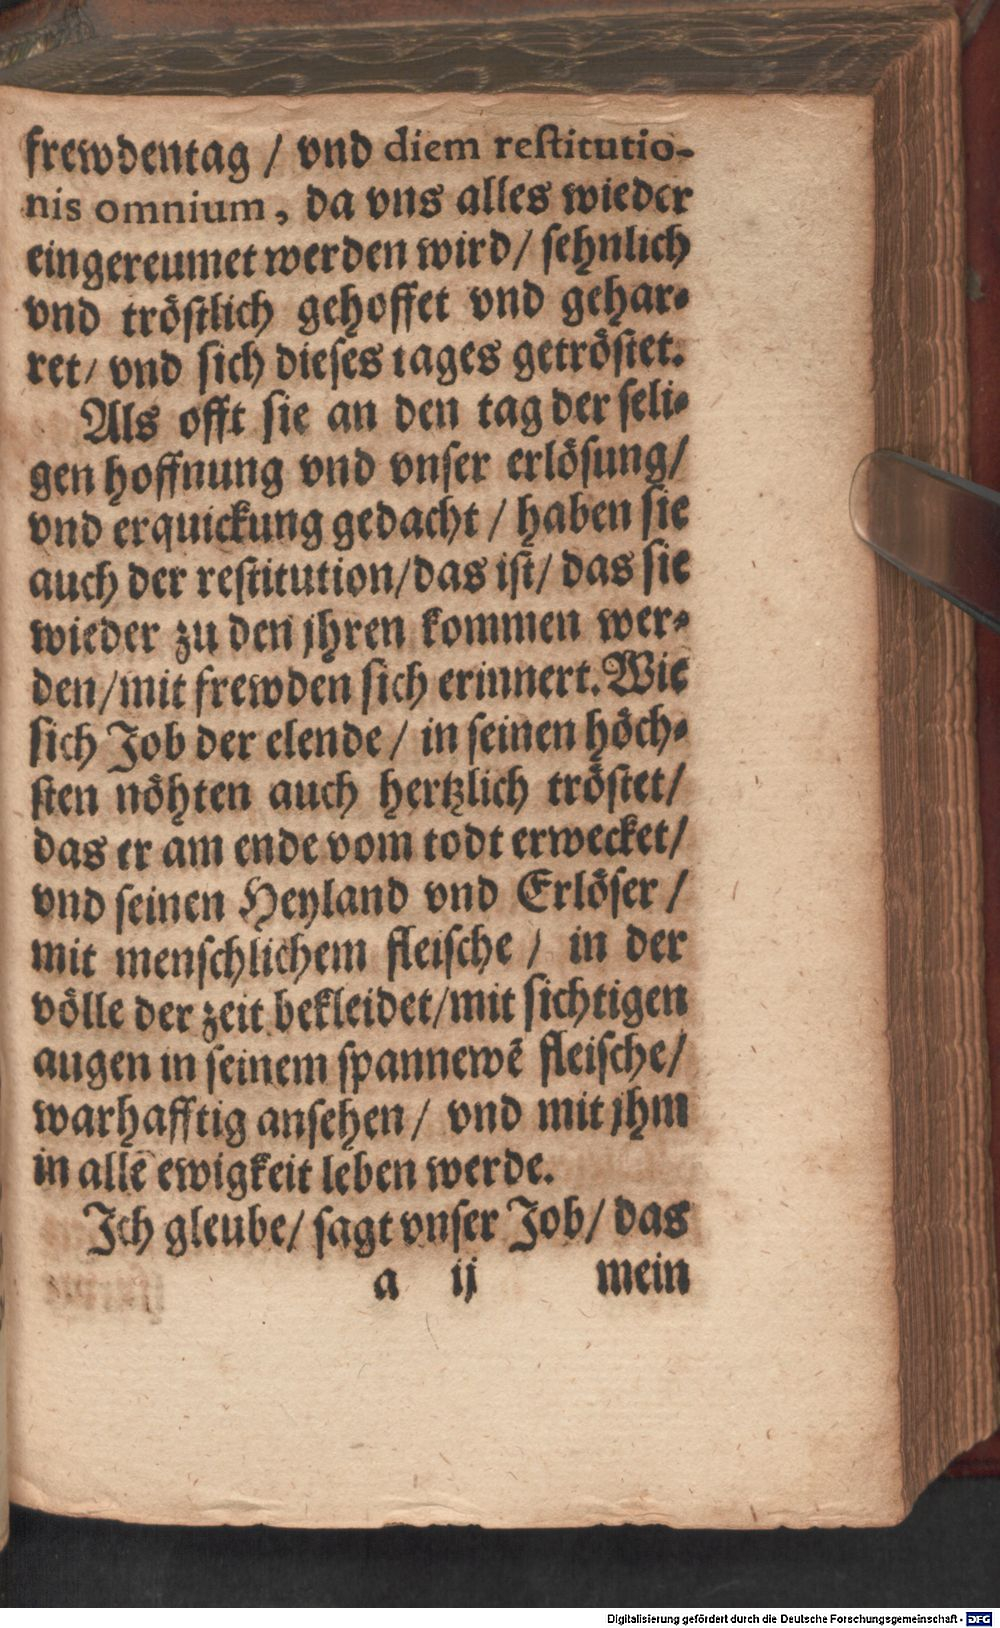 frewdentag / vnd diem restitutio-
nis omnium, da vns alles wieder
eingereumet werden wird / sehnlich
vnd tröstlich gehoffet vnd gehar-
ret / vnd sich dieses tages getröstet.
Als offt sie an den tag der seli-
gen hoffnung vnd vnser erlösung /
vnd erquickung gedacht / haben sie
auch der restitution / das ist / das sie
wieder zu den jhren kommen wer-
den / mit frewden sich erinnert. Wie
sich Job der elende / in seinen höch-
sten nöhten auch hertzlich tröstet /
das er am ende vom todt erwecket /
vnd seinen Heyland vnd Erlöser /
mit menschlichem fleische / in der
völle der zeit bekleidet / mit sichtigen
augen in seinem spannewē fleische /
warhafftig ansehen / vnd mit jhm
in allē ewigkeit leben werde.
Ich gleube / sagt vnser Job / das
a ij mein
Digitalisierung gefördert durch die Deutsche Forschungsgemeinschaft - DFG